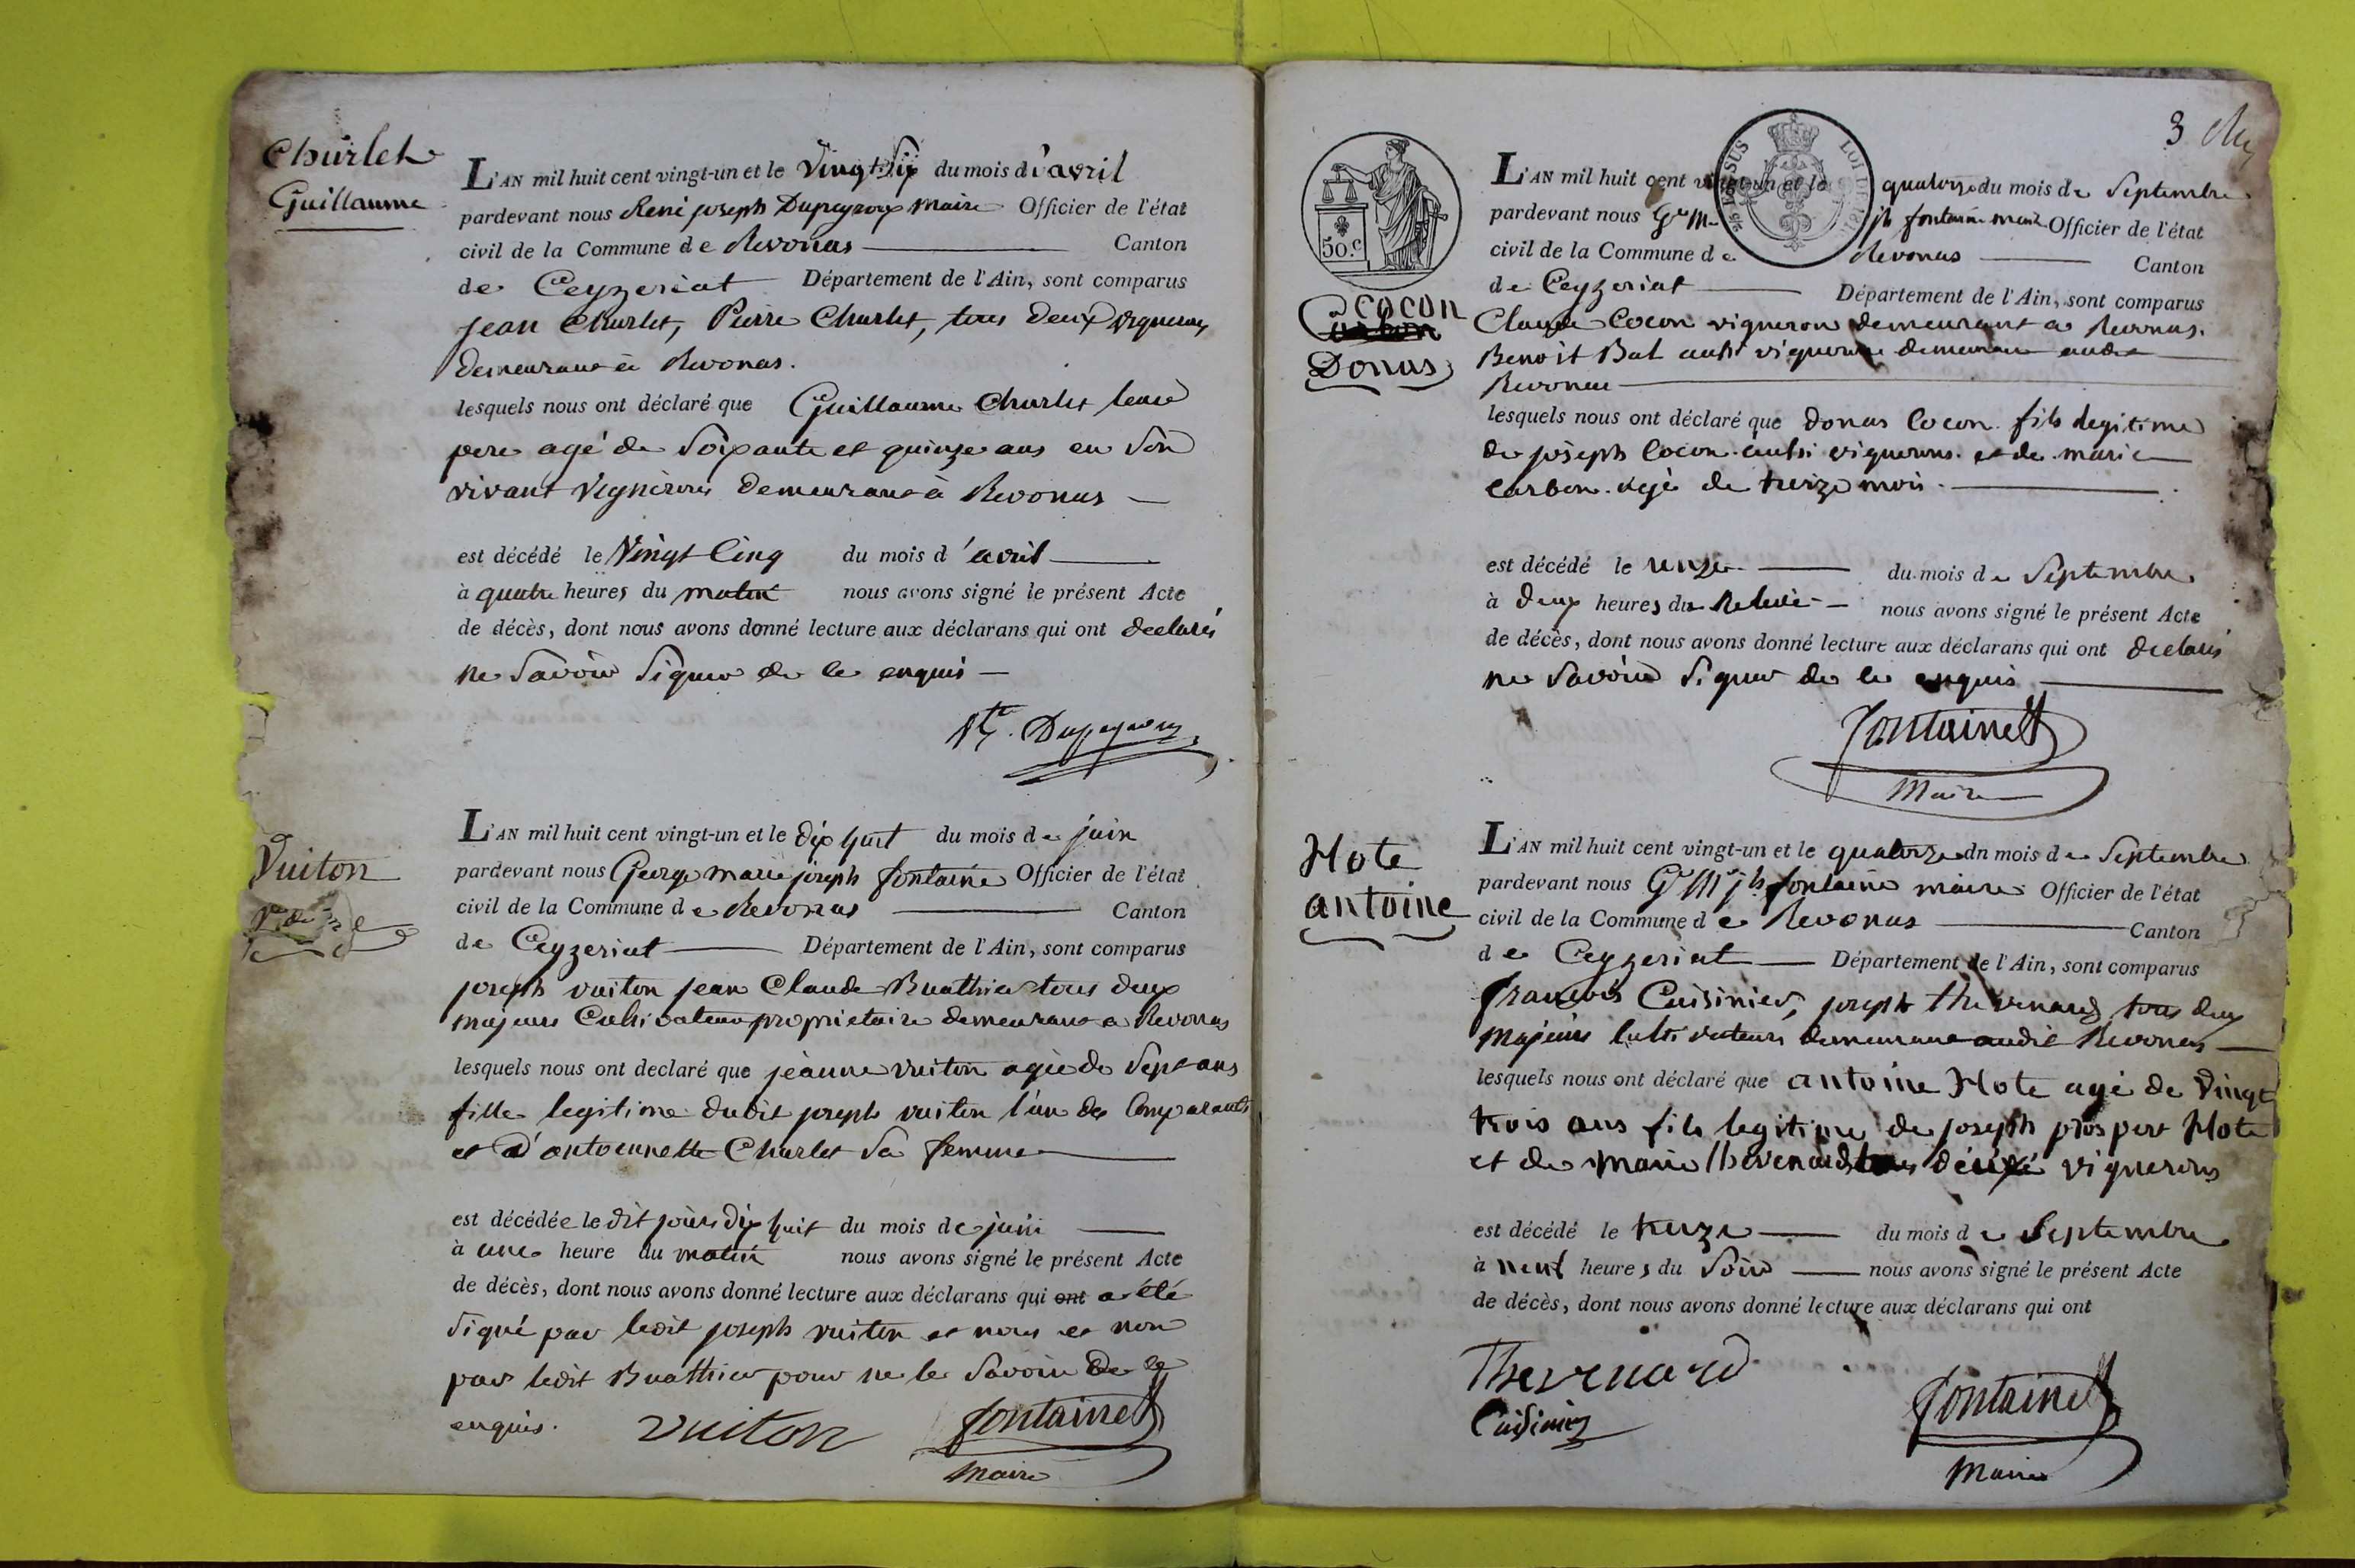 Churlet
Guillaume
L'AN mil huit cent vingt-un et le vingt Six du mois d'avril
pardevant nous René joseph Dupeyroux maire Officier de l'état
civil de la Commune de Revonas Canton
de Ceyzeriat Département de l'Ain, sont comparus
jean Churlet, Pierre Churlet, tous deux vignerons
demeurant à Revonas.
lesquels nous ont déclaré que Guillaume Churlet leur
pere agé de Soixante et quinze ans en Son
vivant vigneron demeurant à Revonas
est décédé le Vingt Cinq du mois d'avril
à quatre heures du matin nous avons signé le présent Acte
de décès, dont nous avons donné lecture aux déclarans qui ont declarés
ne Savoir Signer de ce enquis
Dupeyroux
Vuiton
L'AN mil huit cent vingt-un et le dix huit du mois de juin
pardevant nous George marie joseph fontaine Officier de l'état
civil de la Commune de Revonas Canton
de Ceyzeriat Département de l'Ain, sont comparus
joseph vuiton jean Claude Buathier tous deux
majeurs Cultivateurs proprietaire demeurant a Revonas
lesquels nous ont declaré que jeanne vuiton agée de Sept ans
fille legitime dudit joseph vuiton l'un des Comparants
et d'antoinnette Churlet Sa femme
est décédée le dit jours dix huit du mois de juin
à une heure du matin nous avons signé le présent Acte
de décès, dont nous avons donné lecture aux déclarans qui ont a été
Signé par ledit joseph vuiton et nous et non
par ledit Buathier pour ne le Savoir de ce
enquis. Vuiton fontaine
Maire
3
50.c
LOI DE
EN SUS
Cocon
Donas
L'AN mil huit cent vingt-un et le quatorze du mois de Septembre
pardevant nous Ge M. jh fontaine maire Officier de l'état
civil de la Commune de Revonas Canton
de Ceyzeriat Département de l'Ain, sont comparus
Claude Cocon vigneron demeurant a Revonas.
Benoit Bat aussi vigneron demeurant audit
Revonas
lesquels nous ont déclaré que donas Cocon fils legitime
de joseph Cocon aussi vigneron et de marie
carbon agé de treize mois.
est décédé le onze du mois de Septembre
à deux heures du Relevé nous avons signé le présent Acte
de décès, dont nous avons donné lecture aux déclarans qui ont declaré
ne Savoir Signer de ce enquis
fontaine
Maire
Hote
antoine
L'AN mil huit cent vingt-un et le quatorze dn mois de Septembre
pardevant nous Ge M jh fontaine maire Officier de l'état
civil de la Commune de Revonas Canton
de Ceyzeriat Département de l'Ain, sont comparus
francois Cuisinier, joseph thevenard, tous deux
majeurs Cultivateurs demeurant audit Revonas
lesquels nous ont déclaré que antoine Hote agé de vingt
trois ans fils legitime de joseph prosper Hote
et de marie thevenard tous deux vignerons
est décédé le treize du mois de Septembre
à neuf heures du Soir nous avons signé le présent Acte
de décès, dont nous avons donné lecture aux déclarans qui ont
Thevenard
Cuisinier
fontaine
Maire